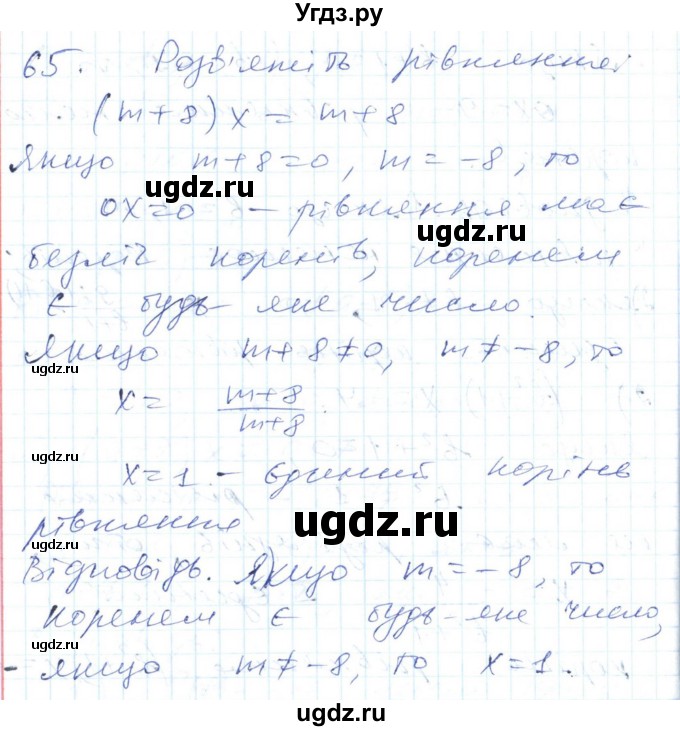 Угдз.ру
65. Розв'яжіть рівняння:
(m+8)x = m+8
Якщо m+8=0, m=-8, то
ugdz.ru
0x=0 - рівняння має
ugdz.ru
безліч коренів, коренем
є будь-яке число.
Якщо m+8≠0, m≠-8, то
ugdz.ru
x = m+8/m+8
ugdz.ru
x=1 - єдиний корінь
рівняння
ugdz.ru
ugdz.ru
Відповідь. Якщо m=-8, то
коренем є будь-яке число,
якщо m≠-8, то x=1.
ugdz.ru
ugdz.ru